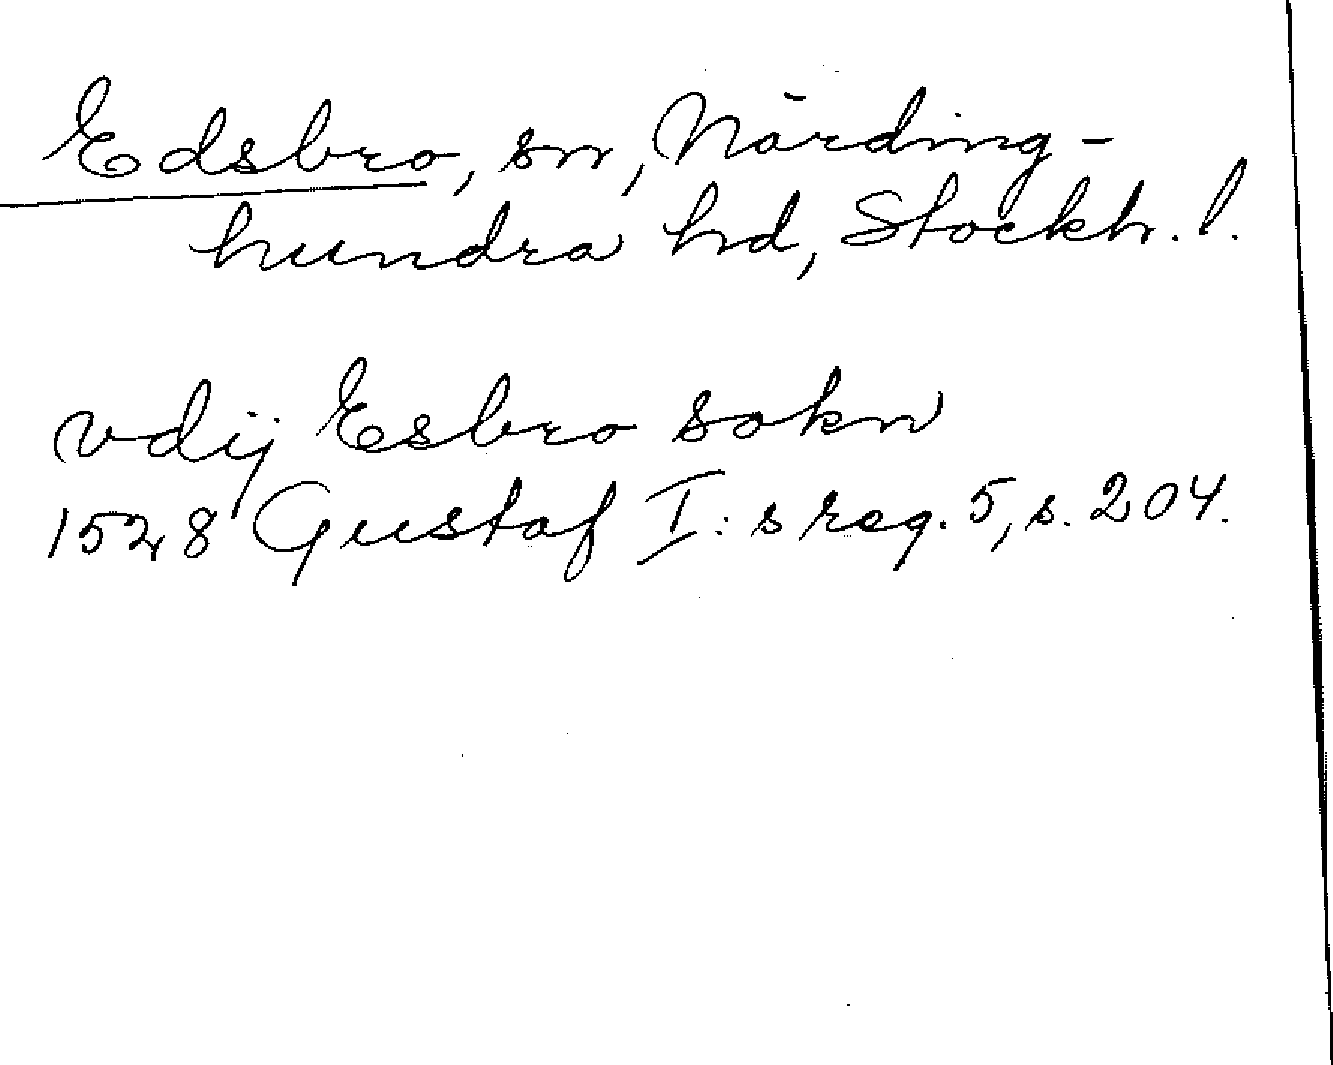 Edsbro, sn, Närding-
hundra hd, Stockh. l.
vdij Esbro sokn
1528 Gustaf I:s reg. 5, s. 204.